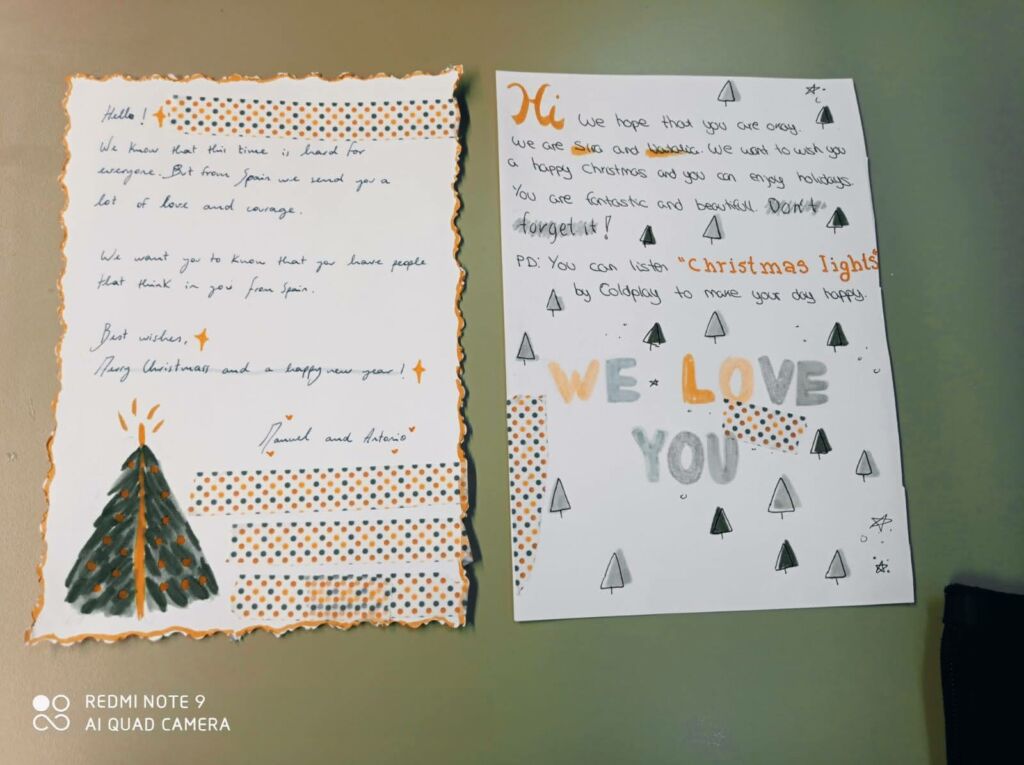 Hello!
We know that this time is hard for
everyone. But from Spain we send you a
lot of love and courage.
We want you to know that you have people
that think in you from Spain.
Best wishes,
Merry Christmass and a happy new year!
Manuel and Antonio
Hi We hope that you are okay.
We are Sira and Natalia. We want to wish you
a happy Christmas and you can enjoy holidays.
You are fantastic and beautifull. Don't
forget it!
PD: You can listen "Christmas lights"
by Coldplay to make your day happy.
WE LOVE
YOU
REDMI NOTE 9
AI QUAD CAMERA